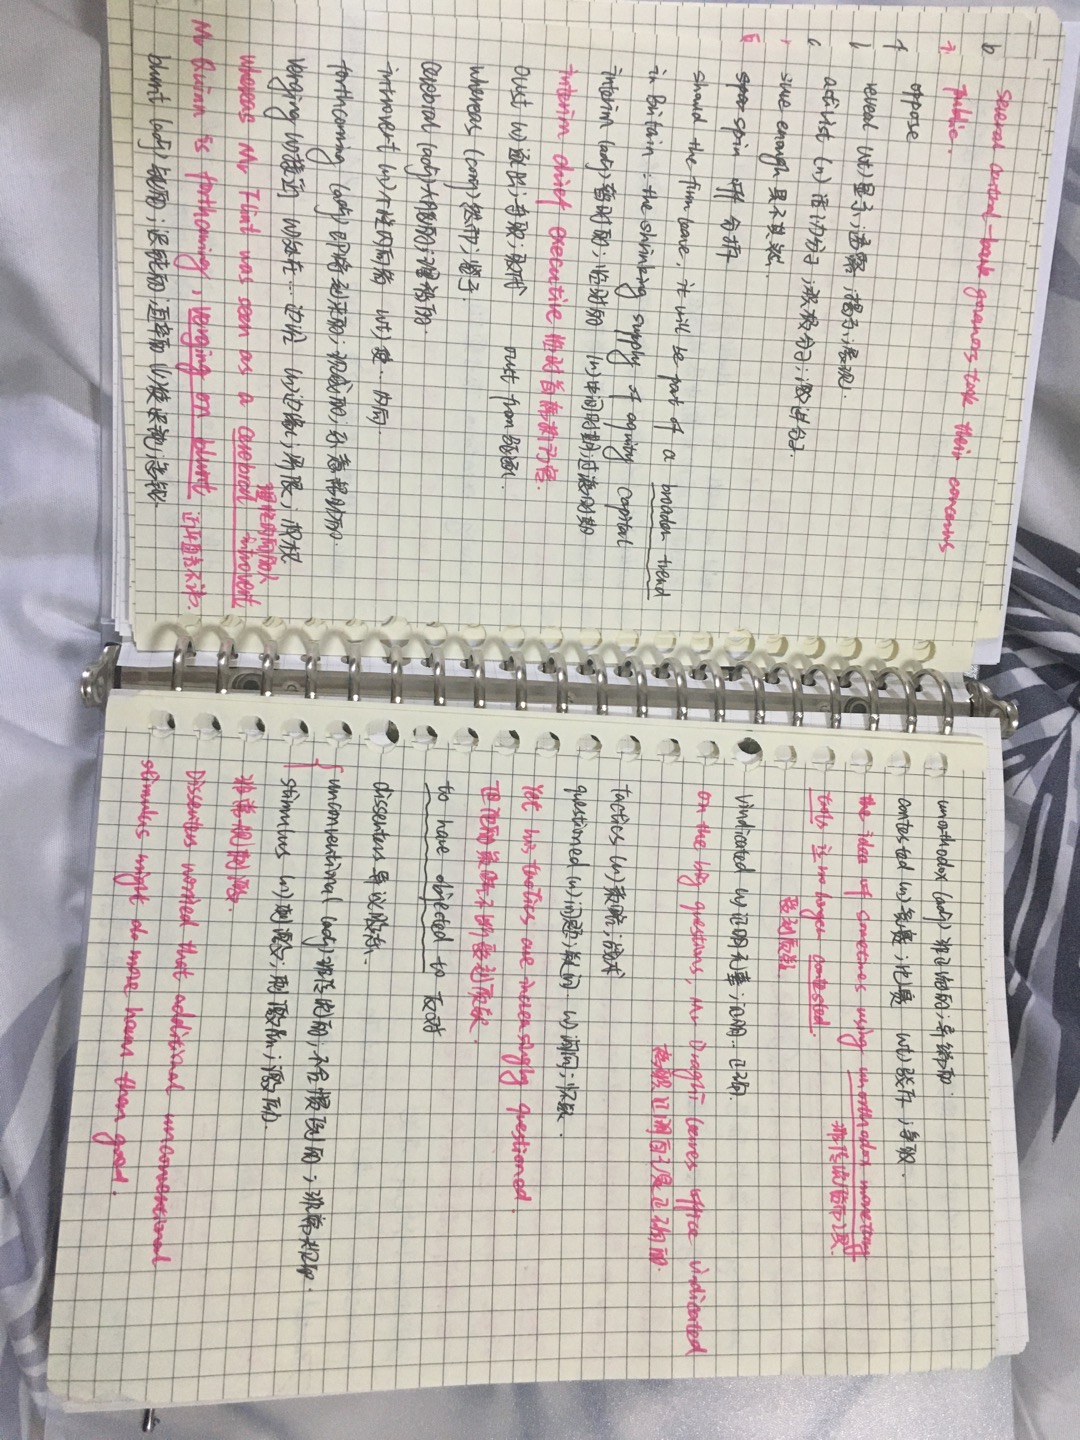 several central-bank governors took their concerns
public.
b
7.
f oppose
b reveal (vt) 显示;透露;揭示;展现.
c activist (n) 活动分子;激进分子.
sure enough 果不其然.
spin 分拆
should the firm leave, it will be part of a broader trend
in Britain: the shrinking supply of equity capital
interim (adj) 暂时的;临时的 (n)中间时期;过渡时期
interim chief executive 临时首席执行官.
oust (v) 驱逐;剥夺;取代 oust from 驱逐.
whereas (conj) 然而;鉴于.
cerebral (adj) 大脑的;理智的.
introvert (n) 性格内向者 (vt) 使…内向.
forthcoming (adj) 即将到来的;现成的;乐意帮助的.
verging (v)接近 (n)边缘;界限
whereas Mr Flint was seen as a cerebral introvert
理性内向的人
Mr Quinn is forthcoming, verging on blunt
直言不讳.
blunt (adj)
unorthodox (adj) 非正统的;异端的.
contested (n)竞赛;比赛 (vt)竞争;争取.
the idea of sometimes using unorthodox monetary
非传统货币政策
tools is no longer contested.
受到质疑
vindicated (v)证明无辜;证明…正确.
on the big questions, Mr Draghi leaves office vindicated
tactics (n)策略;战术
questioned (n)问题;疑问. (v)询问;怀疑.
Yet his tactics are increasingly questioned.
但他的策略不断受到质疑.
to have objected to 反对
dissenters 异议人士.
unconventional (adj)非传统的;不合惯例的;非常规的.
stimulus (n)刺激;刺激物;激励.
非常规刺激.
Dissenters worried that additional unconventional
stimulus might do more harm than good.